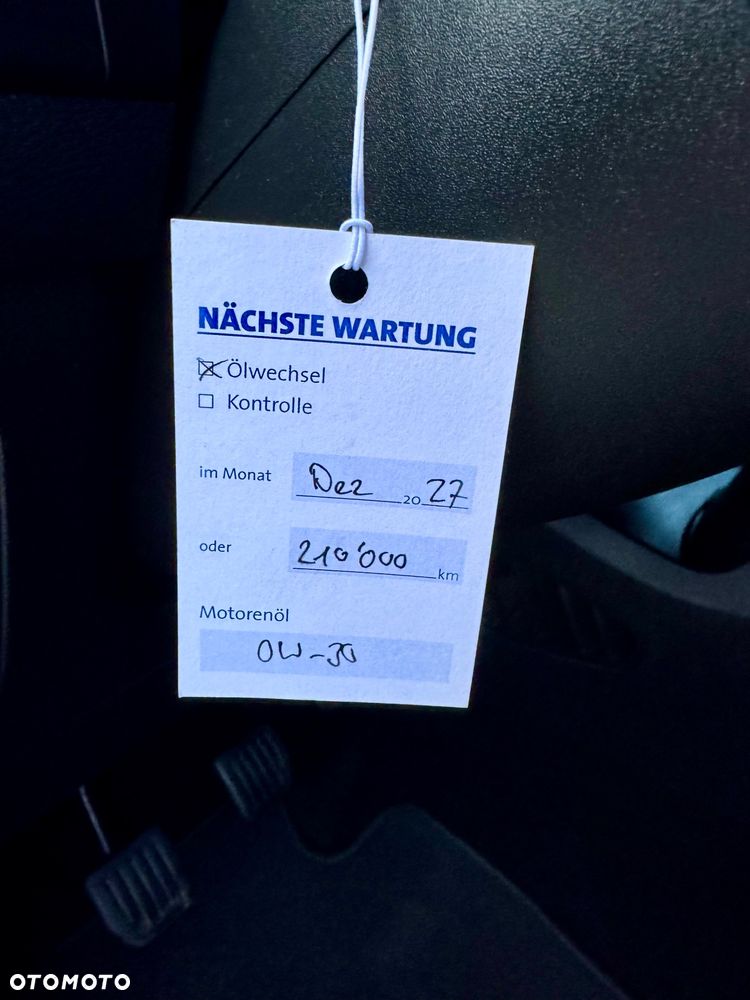 NÄCHSTE WARTUNG
Ölwechsel
Kontrolle
im Monat Dez 2027
oder 210'000 km
Motorenöl
0W-30
OTOMOTO